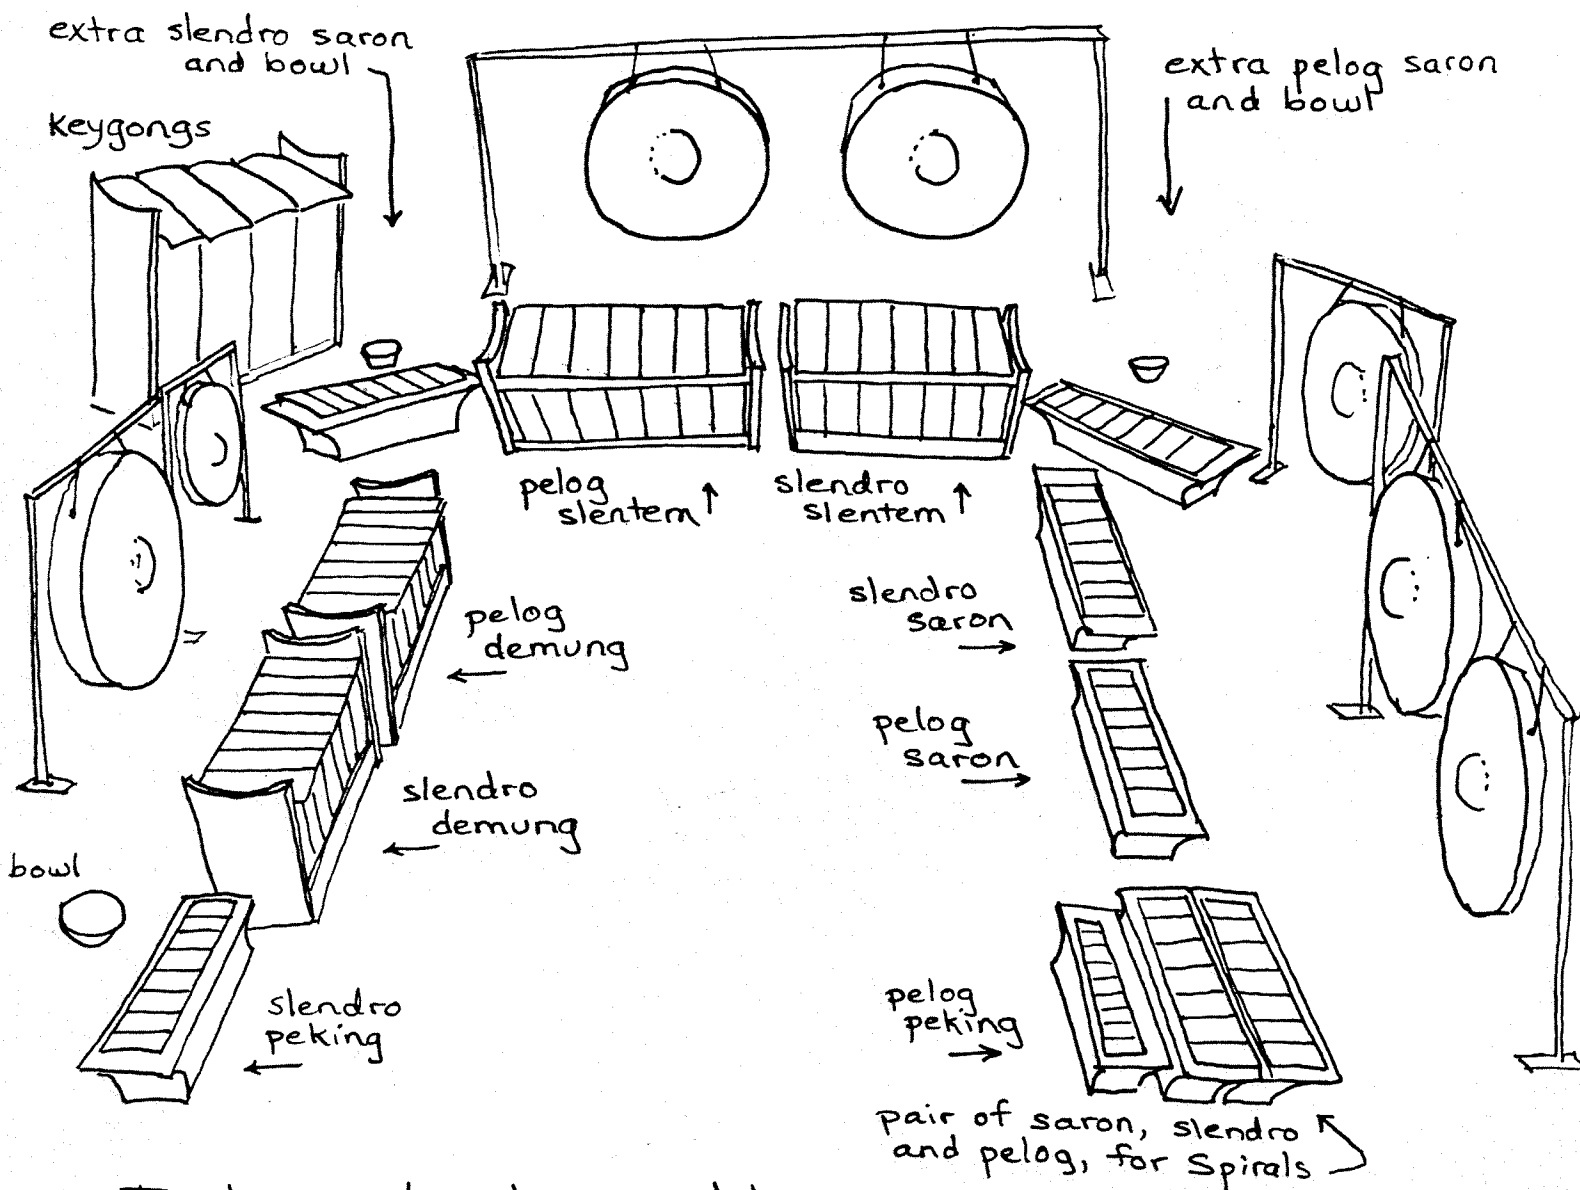 extra slendro saron
and bowl
extra pelog saron
and bowl
keygongs
pelog
slentem
slendro
slentem
slendro
saron
pelog
demung
pelog
saron
slendro
demung
bowl
slendro
peking
pelog
peking
pair of saron, slendro
and pelog, for Spirals